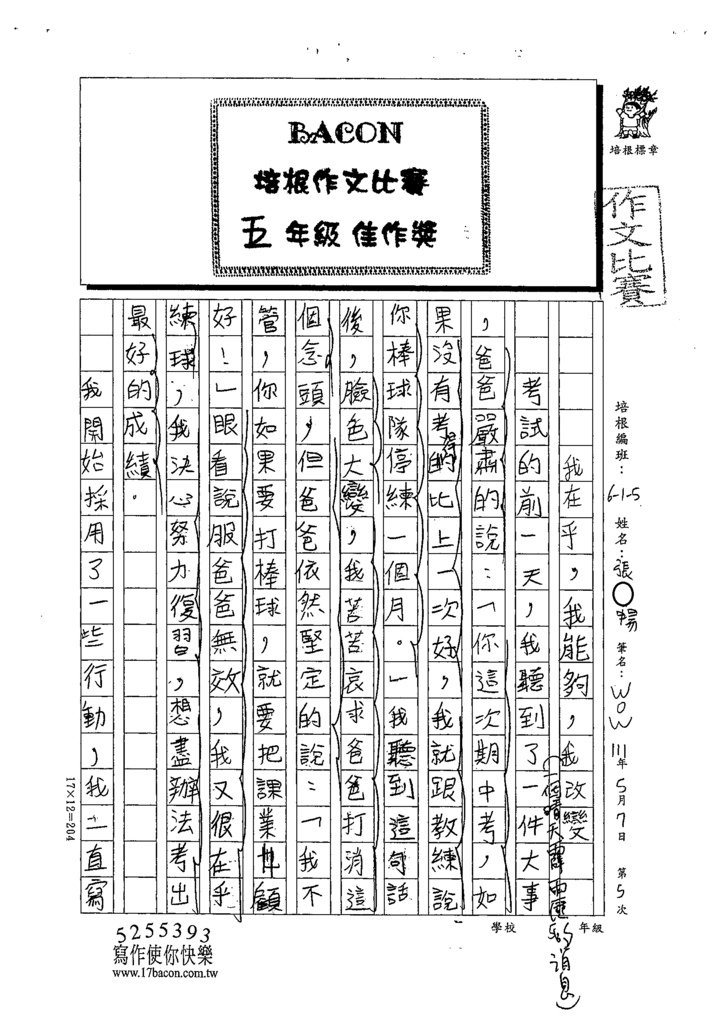 BACON
培根作文比賽
五年級佳作獎
培根標章
作文比賽
培根編班：6-1-5 姓名：張○暘 筆名：WOW 111年5月7日 第5次
學校 年級
我在乎，我能夠，我改變
考試的前一天，我聽到了一件大事
(一個晴天霹靂的消息
，爸爸嚴肅的說：「你這次期中考，如
果沒有考得比上一次好，我就跟教練說
你棒球隊停練一個月。」我聽到這句話
後，臉色大變，我苦苦哀求爸爸打消這
個念頭，但爸爸依然堅定的說：「我不
管，你如果要打棒球，就要把課業顧
好！」眼看說服爸爸無效，我又很在乎
練球，我決心努力復習，想盡辦法考出
最好的成績。
我開始採用了一些行動，我一直寫
17×12=204
5255393
寫作使你快樂
www.17bacon.com.tw